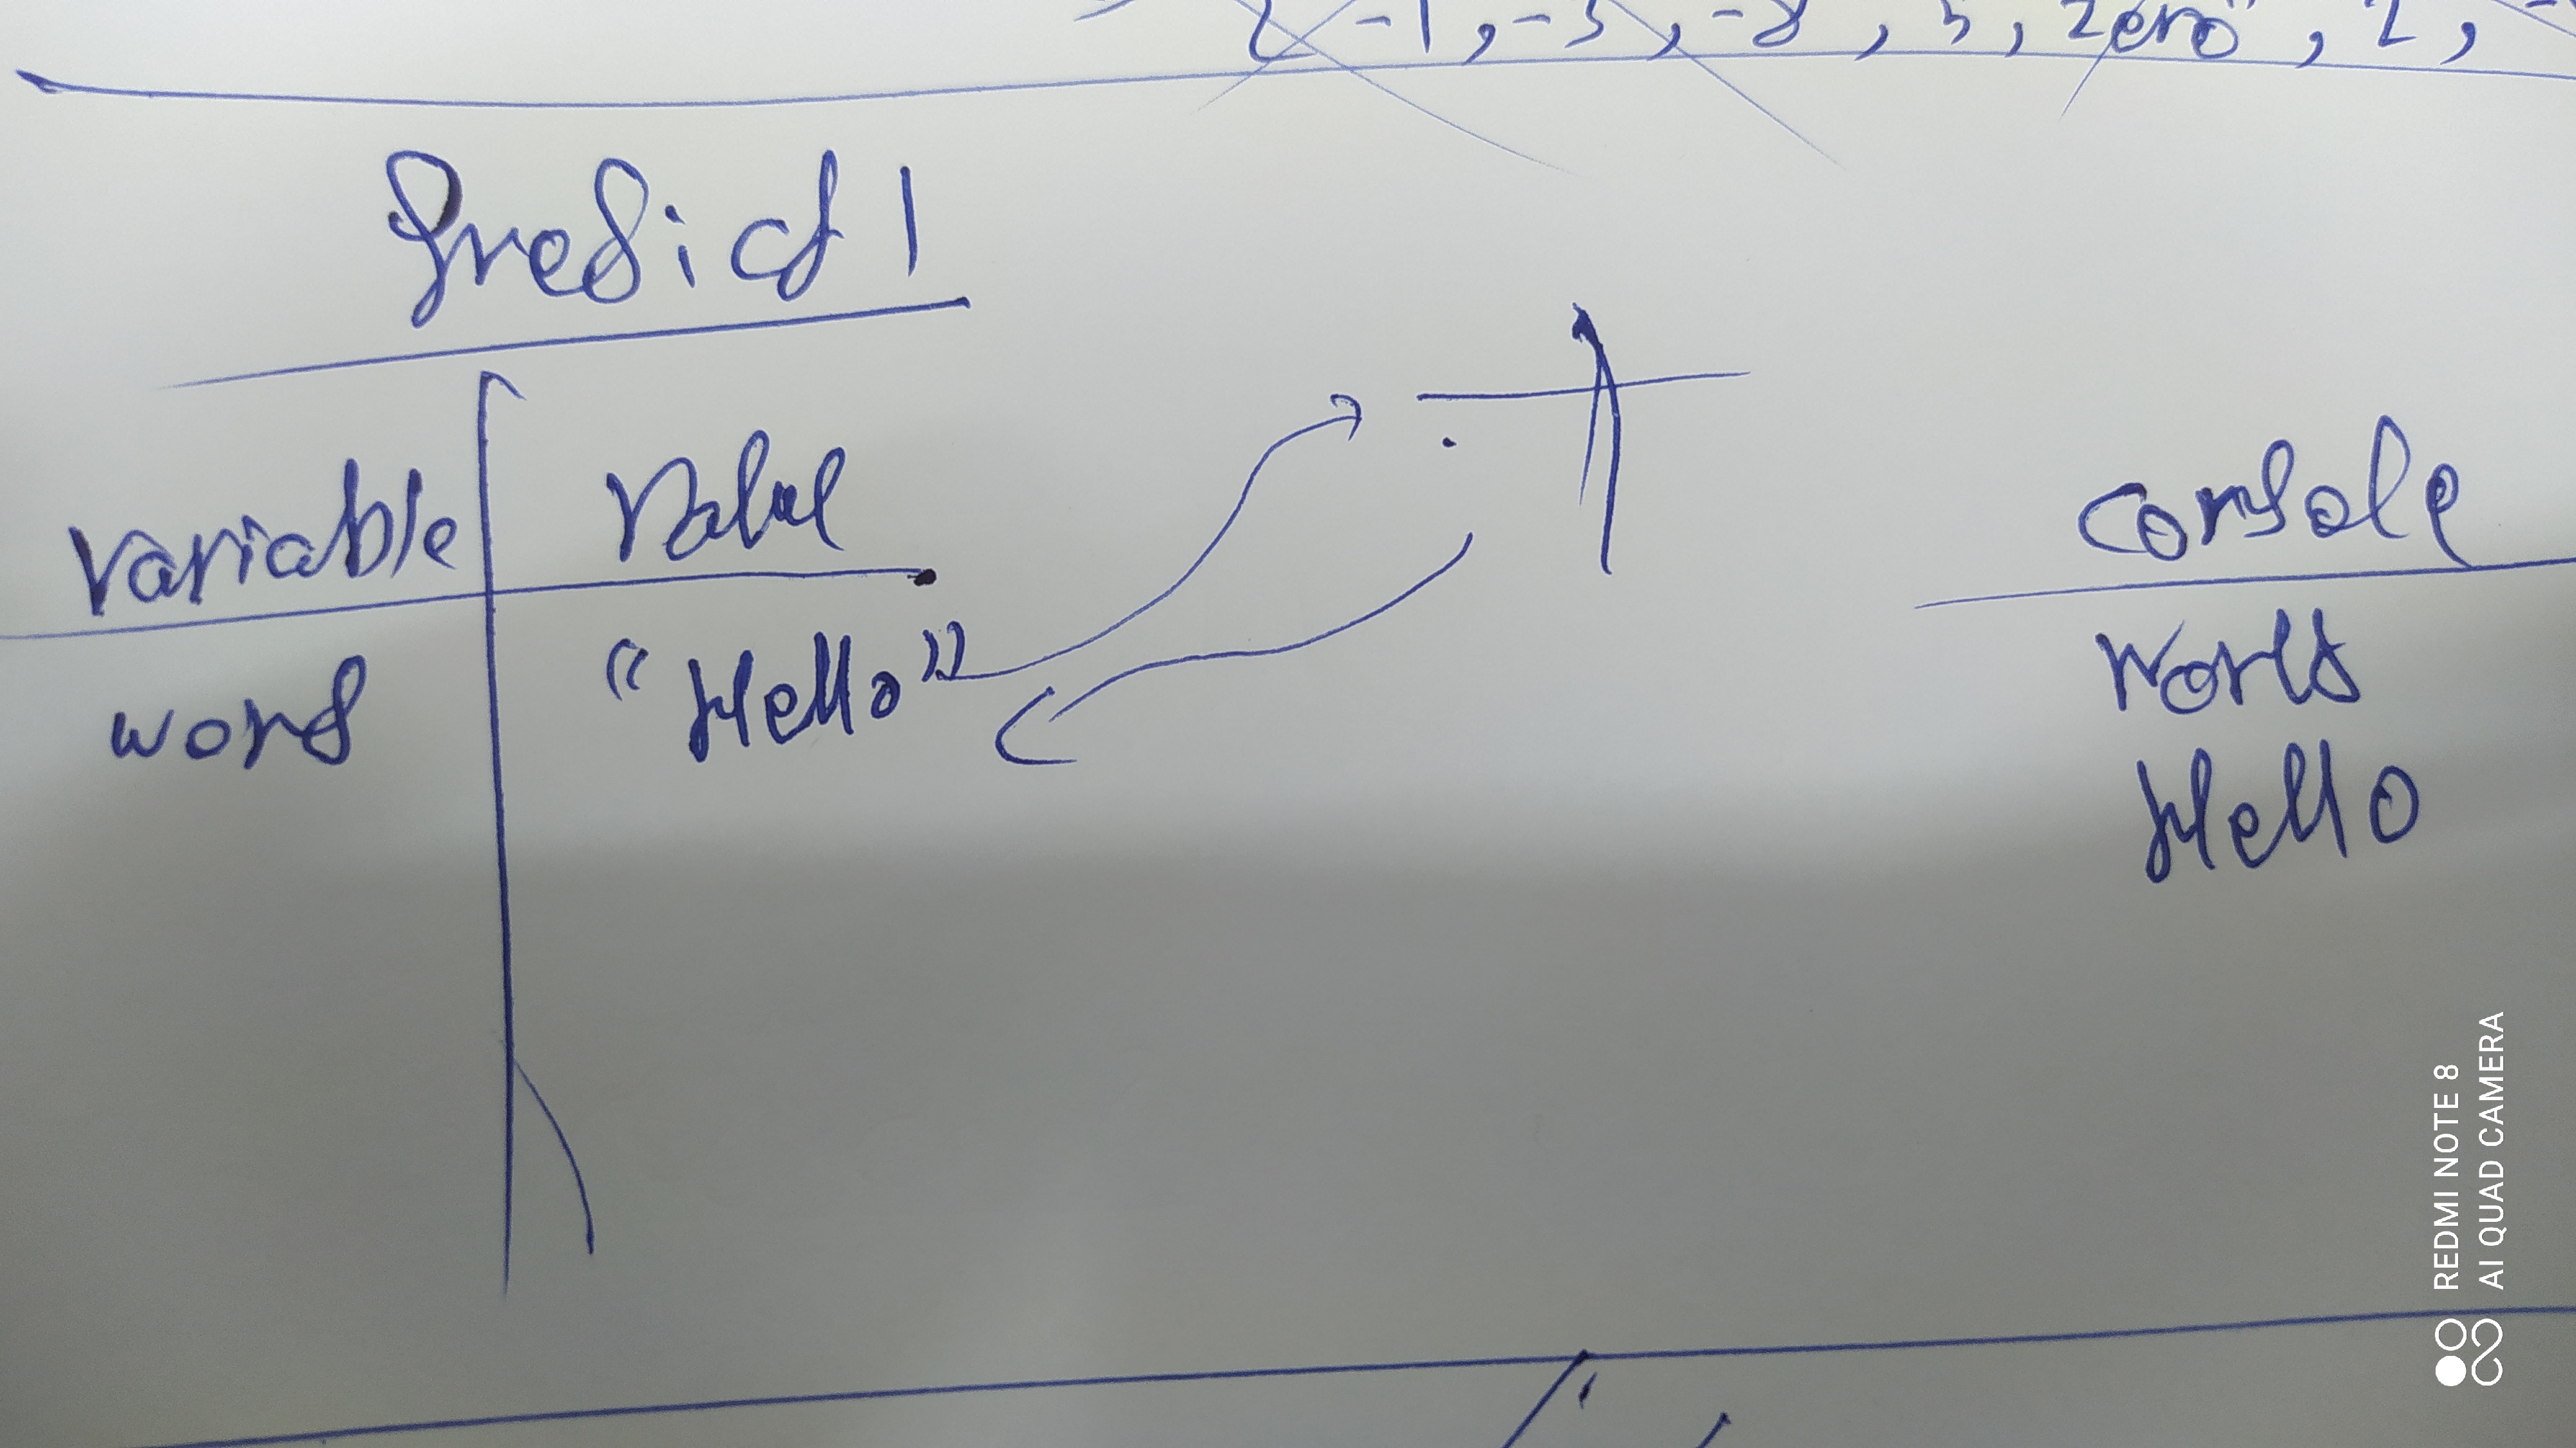 -1, -3, -8, 5, zero", 2,
Predict 1
Variable Value
word "Hello"
Console
World
Hello
REDMI NOTE 8
AI QUAD CAMERA